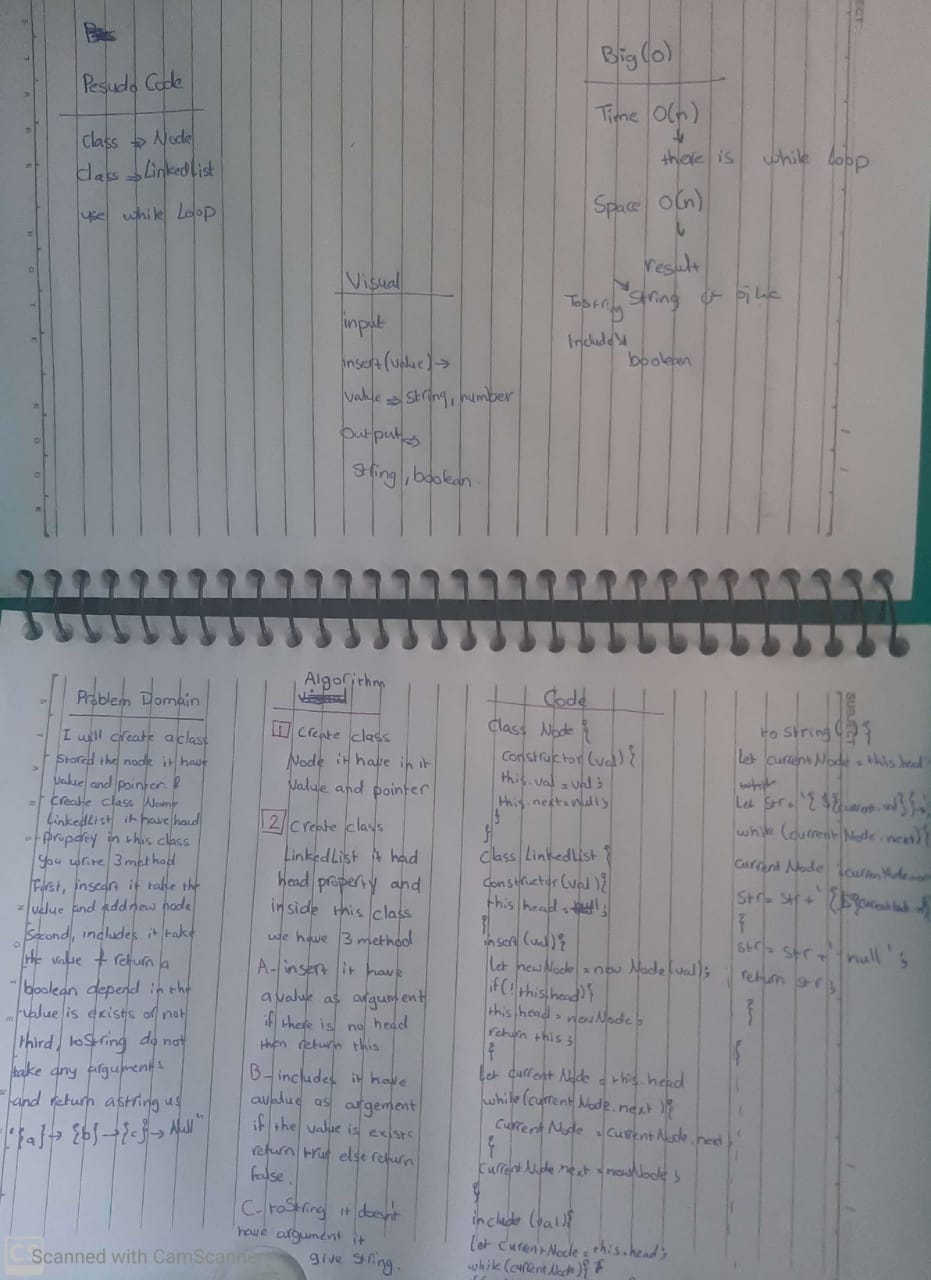 Pesudo Code
class => Node
class => LinkedList
use while Loop
Big(o)
Time O(n)
there is while loop
Space O(n)
result
Tostring String
Includes
boolean
Visual
input
insert(value) →
value => string, number
output =>
string, boolean
SUBJECT
Problem Domain
I will create a class
stored the node it have
value and pointer.
create class Name
LinkedList it have head
property in this class
you write 3 method
First, insert it take the
value and add new node
Second, includes it take
the value + return a
boolean depend in the
value is exists or not
third, toString do not
take any arguments
and return a string us
"{a} → {b} → {c} → Null"
Algorithm
1 Create class
Node it have in it
Value and pointer
2 Create class
LinkedList it had
head property and
inside this class
we have 3 method
A- insert it have
a value as argument
if there is no head
then return this
B- includes it have
avalue as argement
if the value is exists
return true else return
false.
C- toString it doesn't
have argument it
give string.
Code
Class Node {
constructor (val) {
this.val = val;
this.next = null;
}
}
class LinkedList {
constructor (val) {
this head = null;
}
insert (val) {
let newNode = new Node(val);
if (! this.head) {
this.head = newNode;
return this;
}
let currentNode = this.head
while (currentNode.next) {
currentNode = currentNode.next;
}
currentNode.next = newNode;
}
include (val) {
let curentNode = this.head;
while (currentNode) {
to String () {
let currentNode = this.head;
while
let str =
while (currentNode.next) {
currentNode
str = str +
}
str = str + null';
return str;
}
}
CS Scanned with CamScanner